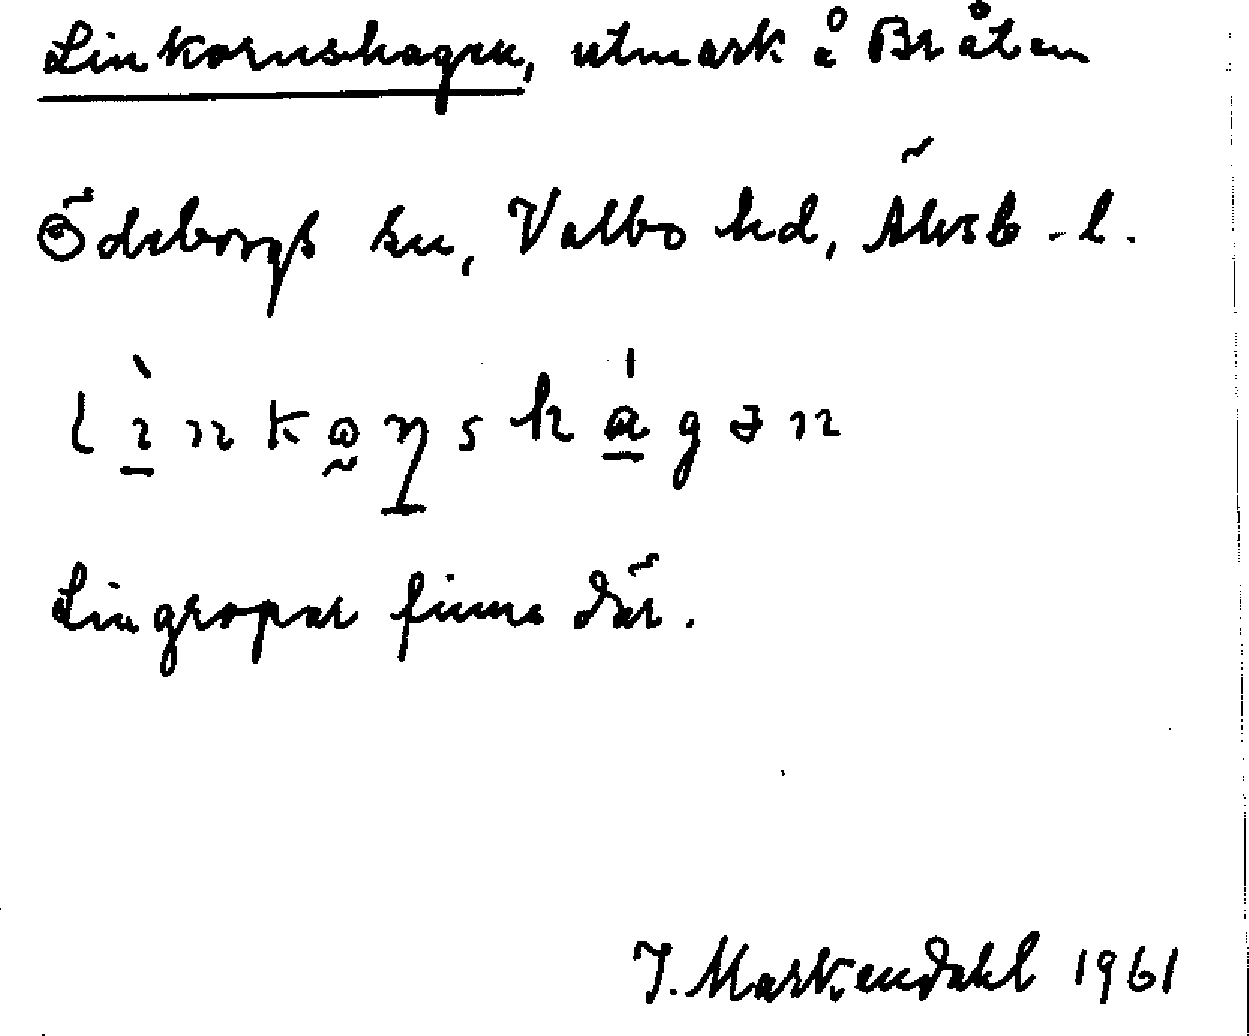 Linkornshagen, utmark å Bråten
Ödeborgs sn, Valbo hd, Älvsb. l.
Lingropar finns där.
J. Markendahl 1961